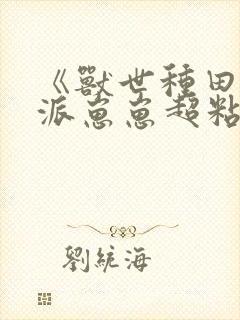 《獸世種田
派崽崽超粘
劉統海